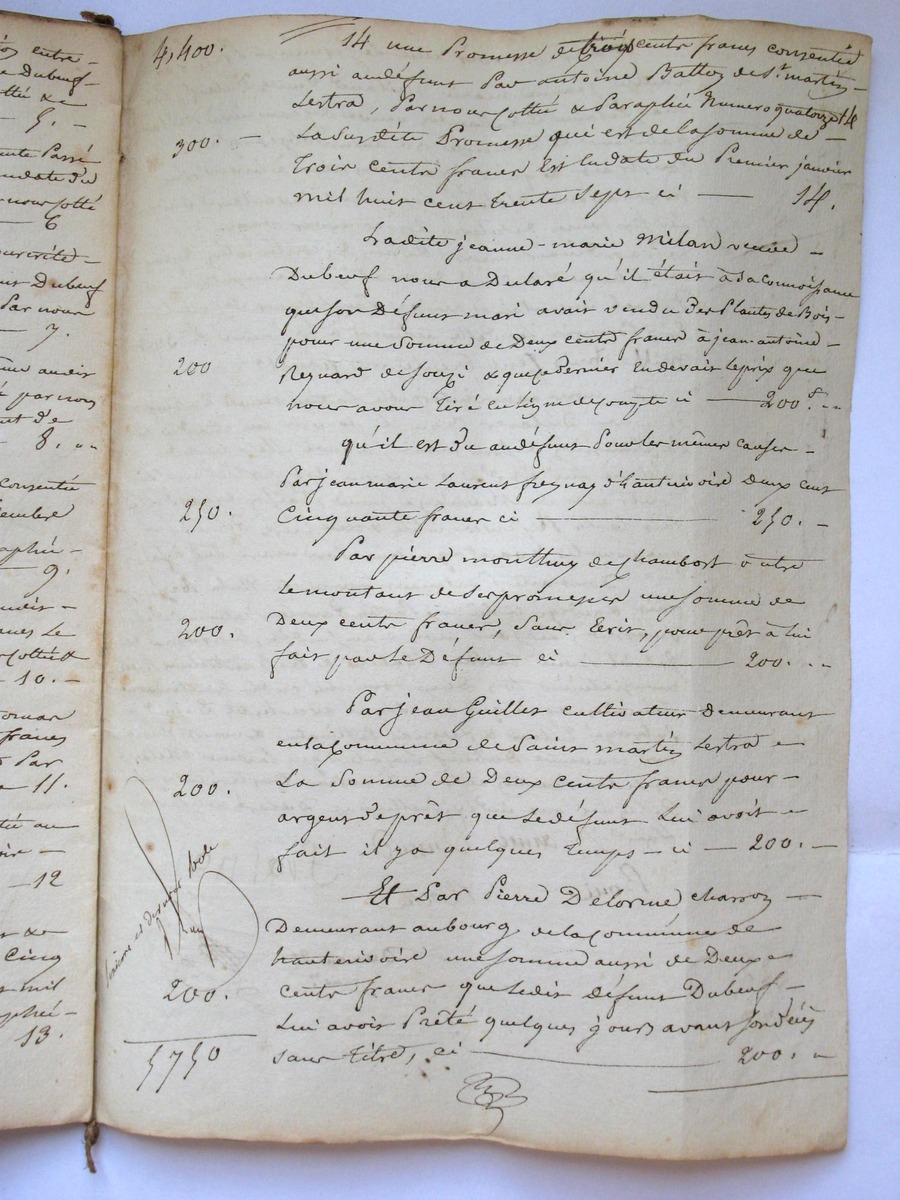 4,400. 14 une Promesse de trois cents francs consentie
aussi au défunt Par antoine Battoz de St. martin
Lestra, Par nous Cottée & Paraphée Numero quatorze 14
300. — La Susdite Promesse qui est de la somme de —
Trois cents francs Est en date du Premier janvier
mil huit cent trente Sept ci — 14.
Ladite jeanne-marie Milan veuve —
Dubeuf nous a Declaré qu'il était à sa connoissance
que son Défunt mari avait vendu des Plantes de Bois —
pour une Somme de Deux cents francs à jean-antoine —
200 Reynard de Souzi & que ce dernier en devait le prix que
nous avons Tiré en ligne de compte ci — 200.f "
qu'il est du au défunt Pour les mêmes causes —
Par jean marie Laurent freynay d'hauterivoire Deux cent
250. Cinquante francs ci — 250. —
Par pierre de Chambost outre
le montant de ses promesses une somme de
200. Deux cents francs, Sans Ecrit, pour prêt à Lui
fait par le Défunt ci — 200. "
Par jean Guillet cultivateur Demeurant
en la Commune de Saint martin Lestra
200. La Somme de Deux cents francs pour —
argent de prêt que le défunt Lui avoit
fait il y a quelques temps — ci — 200. —
Et Par Pierre Delorme charron —
Demeurant au bourg de la Commune de
hauterivoire une somme aussi de Deux
200. cents francs que Ledit défunt Dubeuf —
Lui avoit Prêté quelques jours avant son décès
5750 sans Titre, ci — 200. "
entre
Dubeuf
5. —
Passé
6
Dubeuf
Par nous
7.
par nous
8. "
Consentie
9.
10. —
francs
Par
11.
12
Cinq
mil
13.